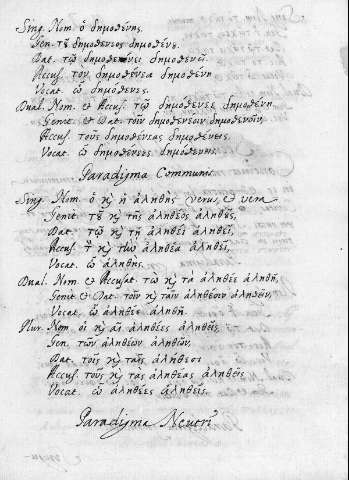 Sing. Nom. ὁ δημοσθένης.
Gen. τοῦ δημοσθένεος δημοσθένους.
Dat. τῷ δημοσθένεϊ δημοσθένει.
Accus. τὸν δημοσθένεα δημοσθένη
Vocat. ὦ δημόσθενες.
Dual. Nom. et Accus. τὼ δημοσθένεε δημοσθένη
Genit. et Dat. τοῖν δημοσθενέοιν δημοσθενοῖν,
Accus. τοὺς δημοσθένεας δημοσθένεις.
Vocat. ὦ δημοσθένεες δημοσθένεις.
Paradigma Communis.
Sing. Nom. ὁ καὶ ἡ ἀληθὴς verus, et vera
Genit. τοῦ καὶ τῆς ἀληθέος ἀληθοῦς,
Dat. τῷ καὶ τῇ ἀληθέϊ ἀληθεῖ,
Accus. καὶ τὴν ἀληθέα
Vocat. ὦ ἀληθὴς.
Dual. Nom. et Accusat. τὼ καὶ τὰ ἀληθέε ἀληθῆ,
Genit. et Dat. τοῖν καὶ ταῖν ἀληθέοιν ἀληθοῖν,
Vocat. ὦ ἀληθέε ἀληθῆ.
Plur. Nom. οἱ καὶ αἱ ἀληθέες ἀληθεῖς,
Gen. τῶν ἀληθέων ἀληθῶν,
Dat. τοῖς καὶ ταῖς ἀληθέσι
Accus. τοὺς καὶ τὰς ἀληθέας ἀληθεῖς
Vocat. ὦ ἀληθέες ἀληθεῖς.
Paradigma Neutri